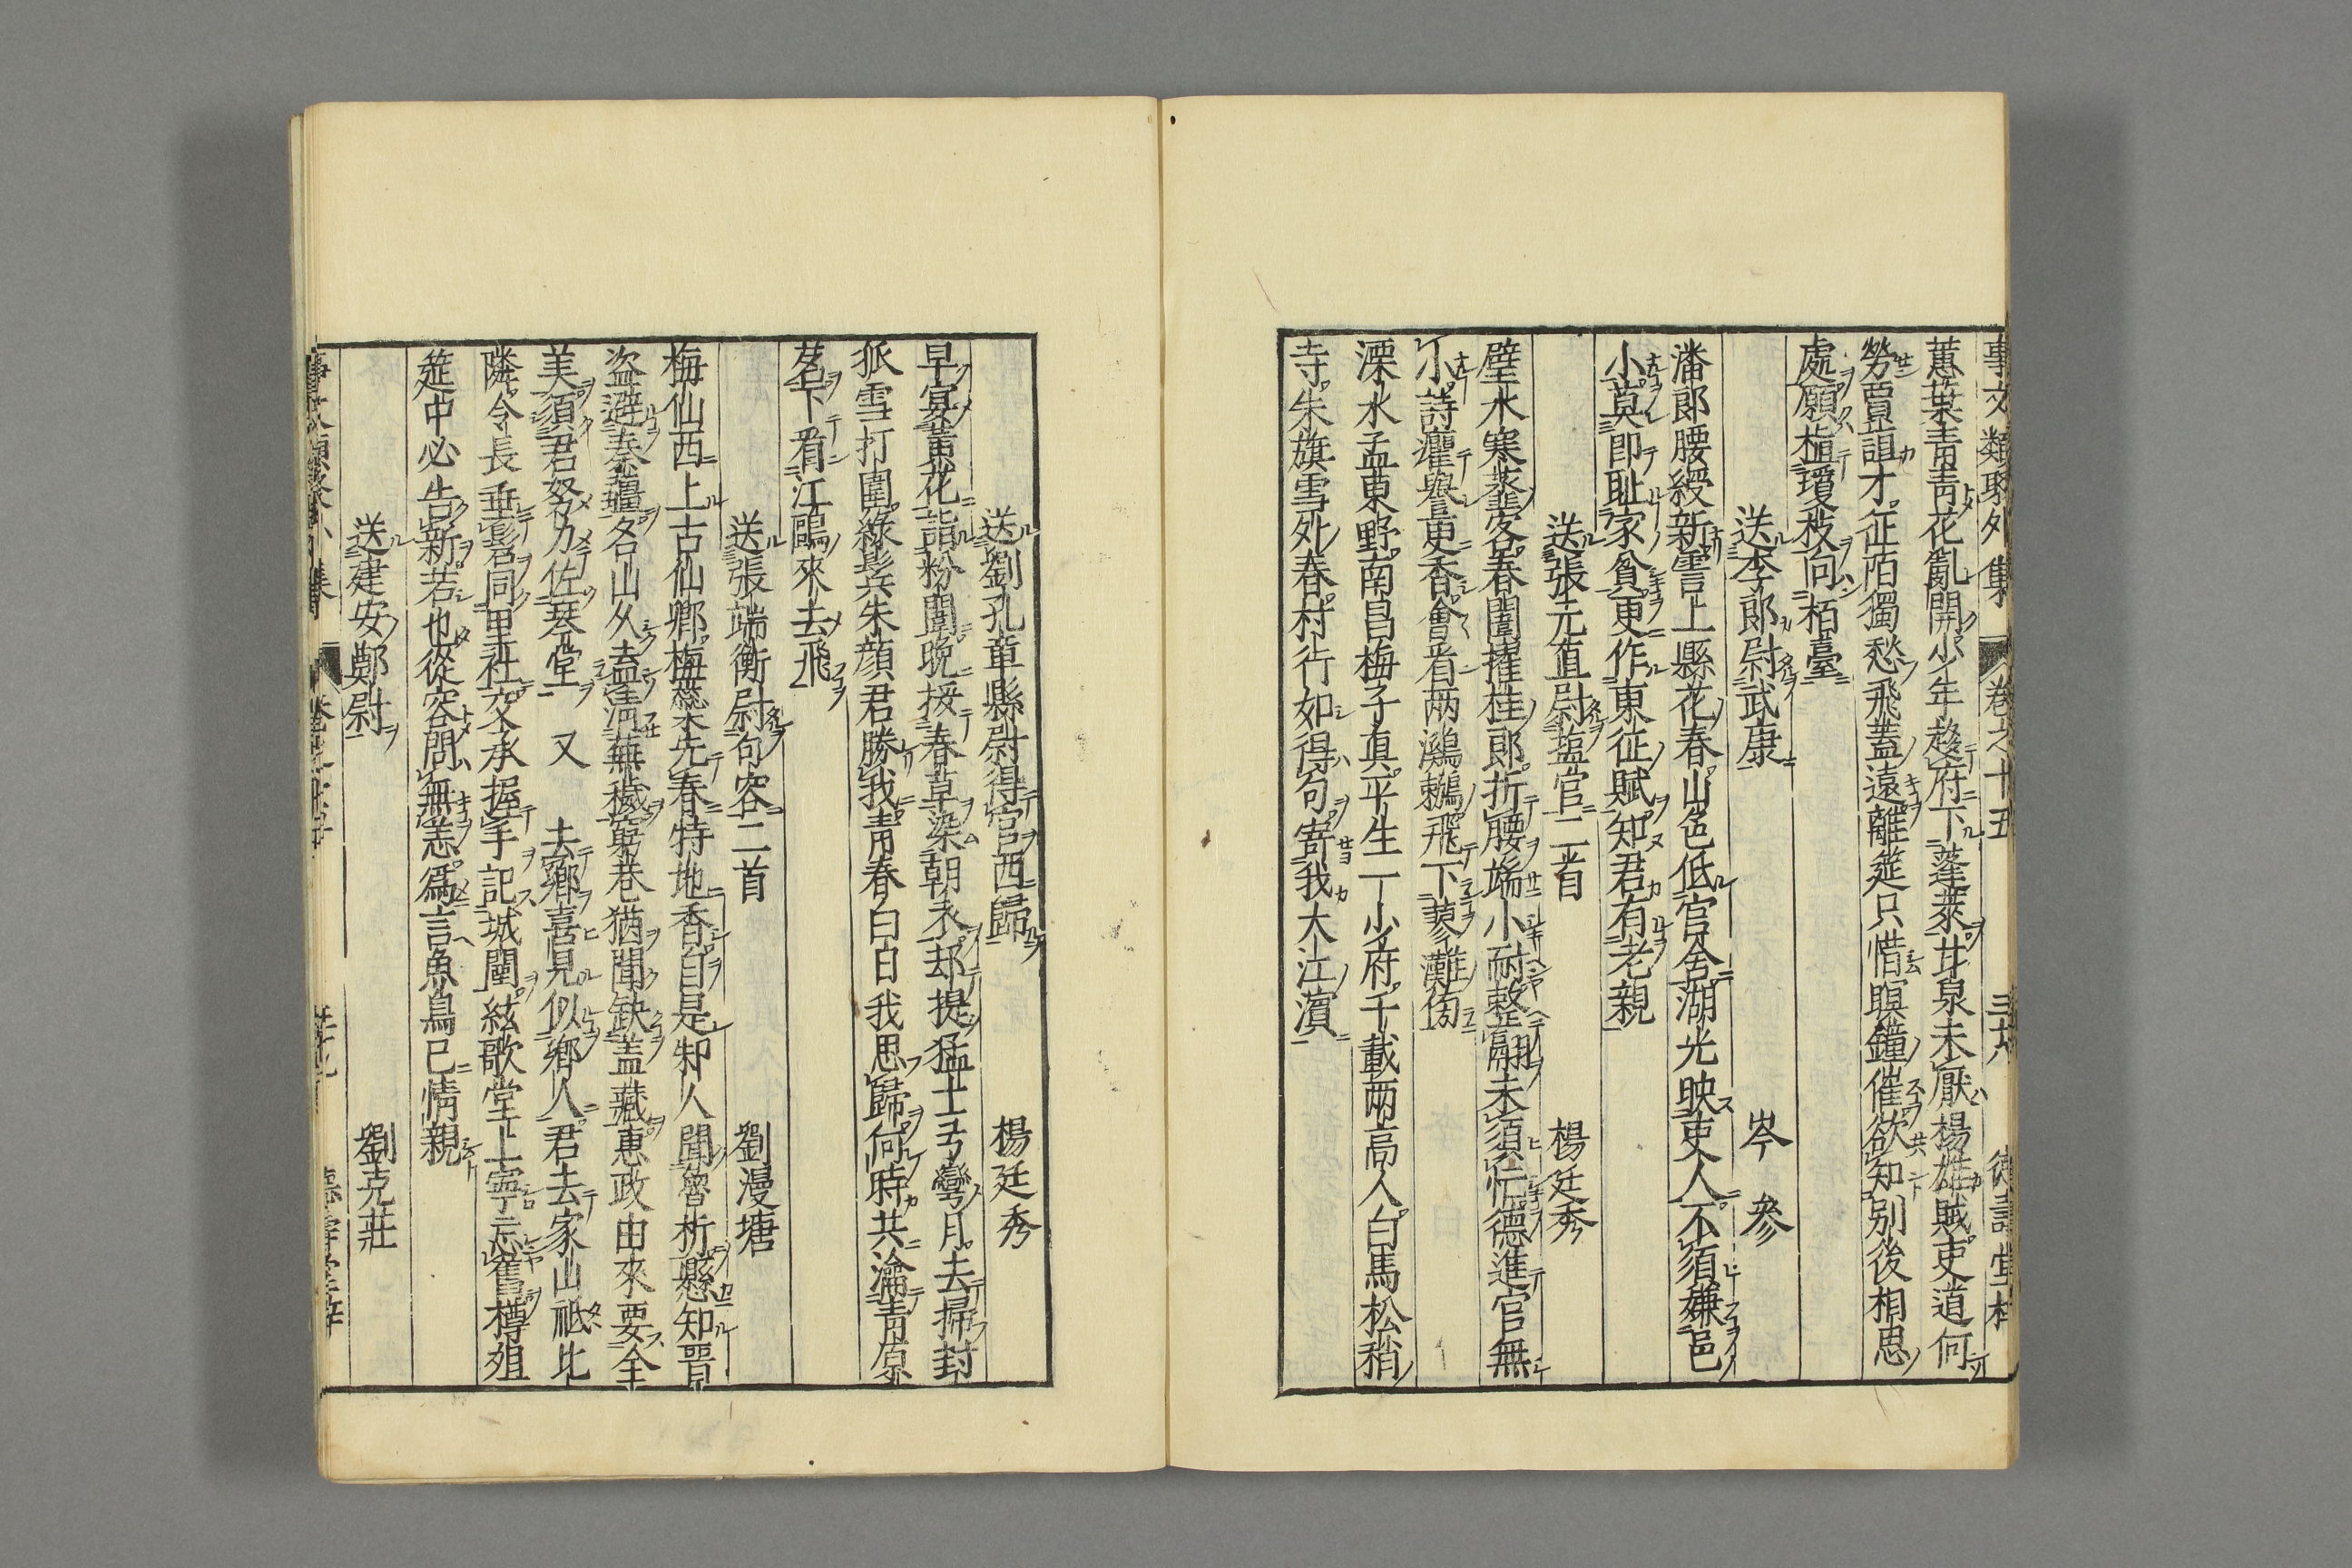 事文類聚外集 卷之十五 三十八 德壽堂梓
蕙葉青青花亂開少年趨府下蓬萊甘泉未厭楊雄賦吏道何
勞賈誼才征陌獨愁飛蓋遠離筵只惜暝鐘催欲知別後相思
處願植瓊枝向栢臺
送李郎尉武康 岑參
潘郎腰綬新霅上縣花春山色低官舍湖光映吏人不須嫌邑
小莫即恥家貧更作東征賦知君有老親
送張元直尉塩官二首 楊廷秀
壁水寒虀客春闈擢桂郎折腰端小耐整翮未須忙德進官無
小詩癯譽更香會看兩鸂鶒飛下蓼灘傍
溧水孟東野南昌梅子真平生一少府千載兩高人白馬松梢
寺朱旗雪外春村行如得句寄我大江濱
送劉孔章縣尉得官西歸 楊廷秀
早宴黃花詣粉闈晚接春草染朝衣却提猛士弓彎月去掃封
狐雪打圍綠鬢兵朱顔君勝我青春白日我思歸何時共瀹青原
茗下看江鷗來去飛
送張端衡尉句容二首 劉漫塘
梅仙西上古仙鄉梅蘂先春特地香自是知人聞魯析懸知晋
盜避秦疆名山久盍淸蕪穢窮巷猶聞缺蓋藏惠政由來要全
美須君努力佐琴堂 又 去鄉喜見似鄉人君去家山祇比
隣令長垂髫同里社交承握手記城闉絃歌堂上寧忘舊樽俎
筵中必告新若也從容問無恙爲言魚鳥已情親
送建安鄭尉 劉克莊